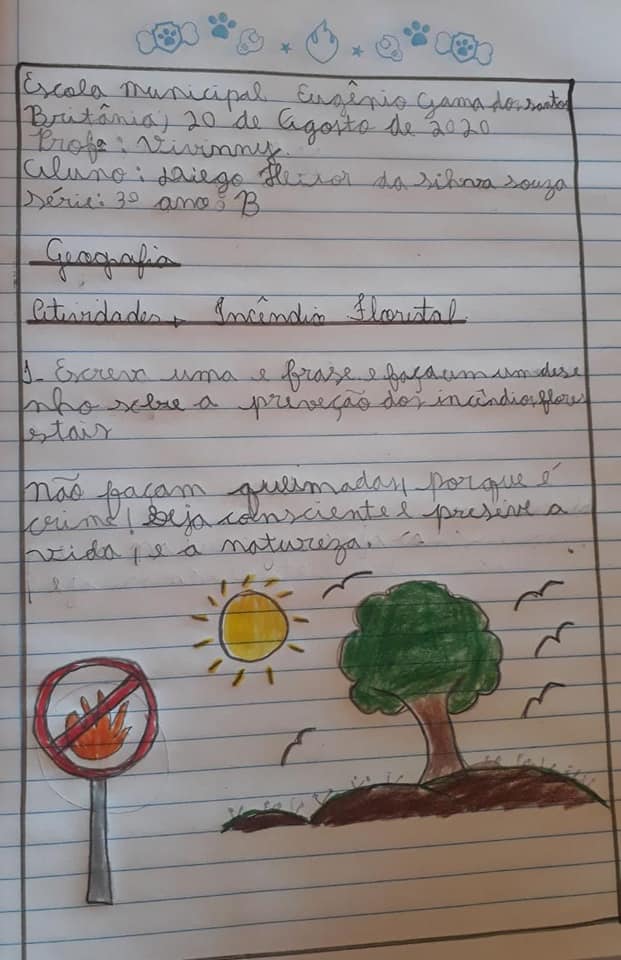 Escola Municipal Eugênio Gama dos santos
Britânia, 20 de Agosto de 2020
Profª: Vivinny.
Aluno: Diego Heitor da silva souza
série: 3º ano: B
Geografia
Atividades, Incêndio Florestal.
1- Escrev uma e frase e faça um um dese
nho sobre a preveção dos incândios flores
estais
não façam queimadas, porque é
crime! Seja consciente e presive a
vida, e a natureza.